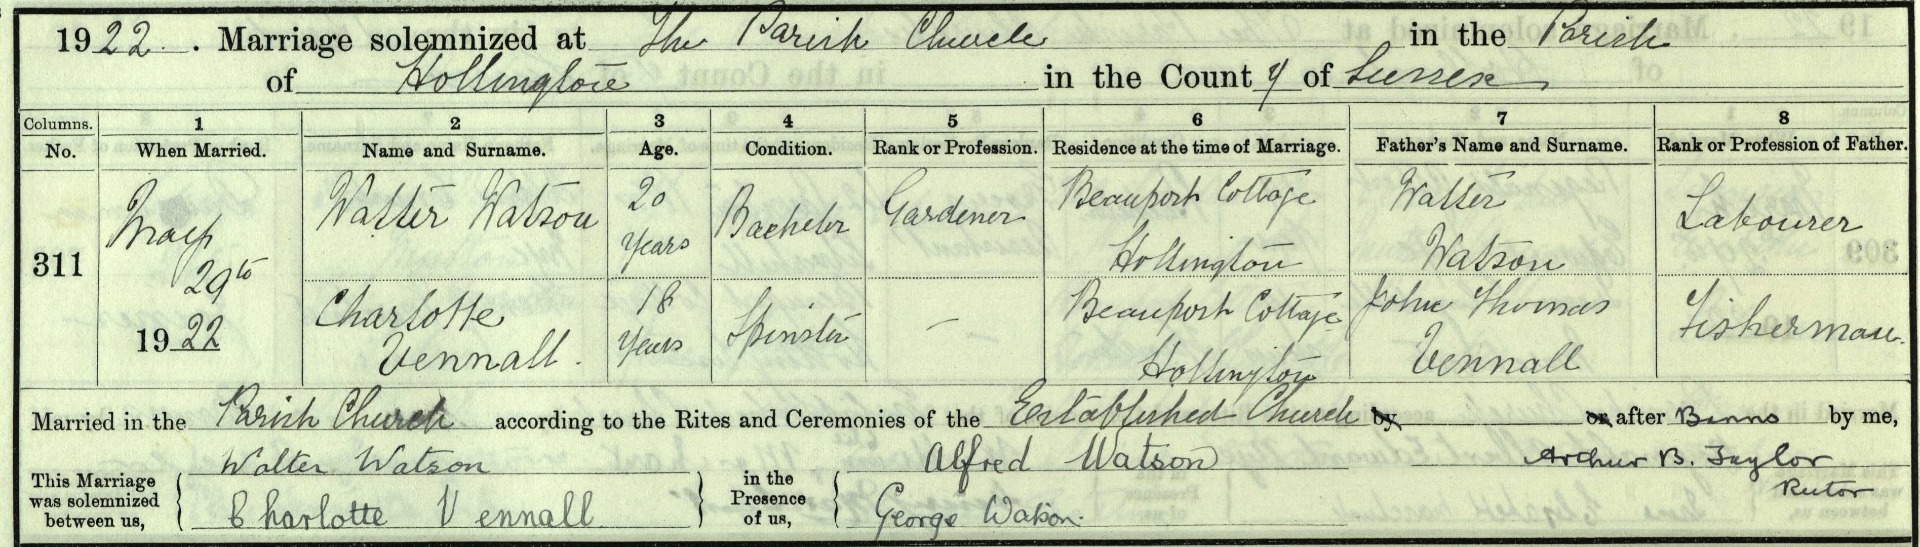 1922. Marriage solemnized at The Parish Church in the Parish
of Hollington in the County of Sussex
Columns. 1 2 3 4 5 6 7 8
No. When Married. Name and Surname. Age. Condition. Rank or Profession. Residence at the time of Marriage. Father's Name and Surname. Rank or Profession of Father.
311 May 29th 1922 Walter Watson 20 Years Bachelor Gardener Beauport Cottage Hollington Walter Watson Labourer
Charlotte Vennall. 18 Years Spinster — Beauport Cottage Hollington John Thomas Vennall Fisherman.
Married in the Parish Church according to the Rites and Ceremonies of the Established Church by or after Banns by me,
This Marriage was solemnized between us, Walter Watson Charlotte Vennall in the Presence of us, Alfred Watson George Watson. Arthur B. Taylor Rector